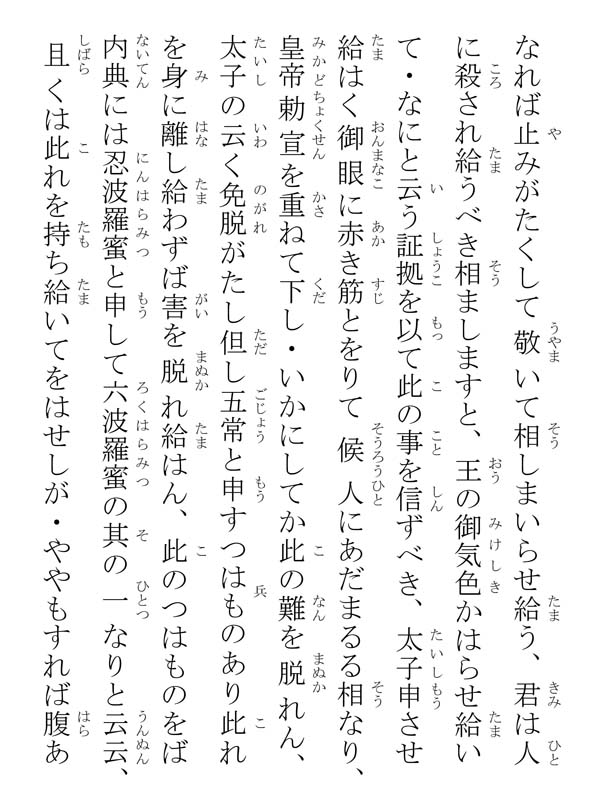 なれば止みがたくして敬いて相しまいらせ給う、君は人
に殺され給うべき相ましますと、王の御気色かはらせ給い
て・なにと云う証拠を以て此の事を信ずべき、太子申させ
給はく御眼に赤き筋とをりて候人にあだまるる相なり、
皇帝勅宣を重ねて下し・いかにしてか此の難を脱れん、
太子の云く免脱がたし但し五常と申すつはものあり此れ
を身に離し給わずば害を脱れ給はん、此のつはものをば
内典には忍波羅蜜と申して六波羅蜜の其の一なりと云云、
且くは此れを持ち給いてをはせしが・ややもすれば腹あ